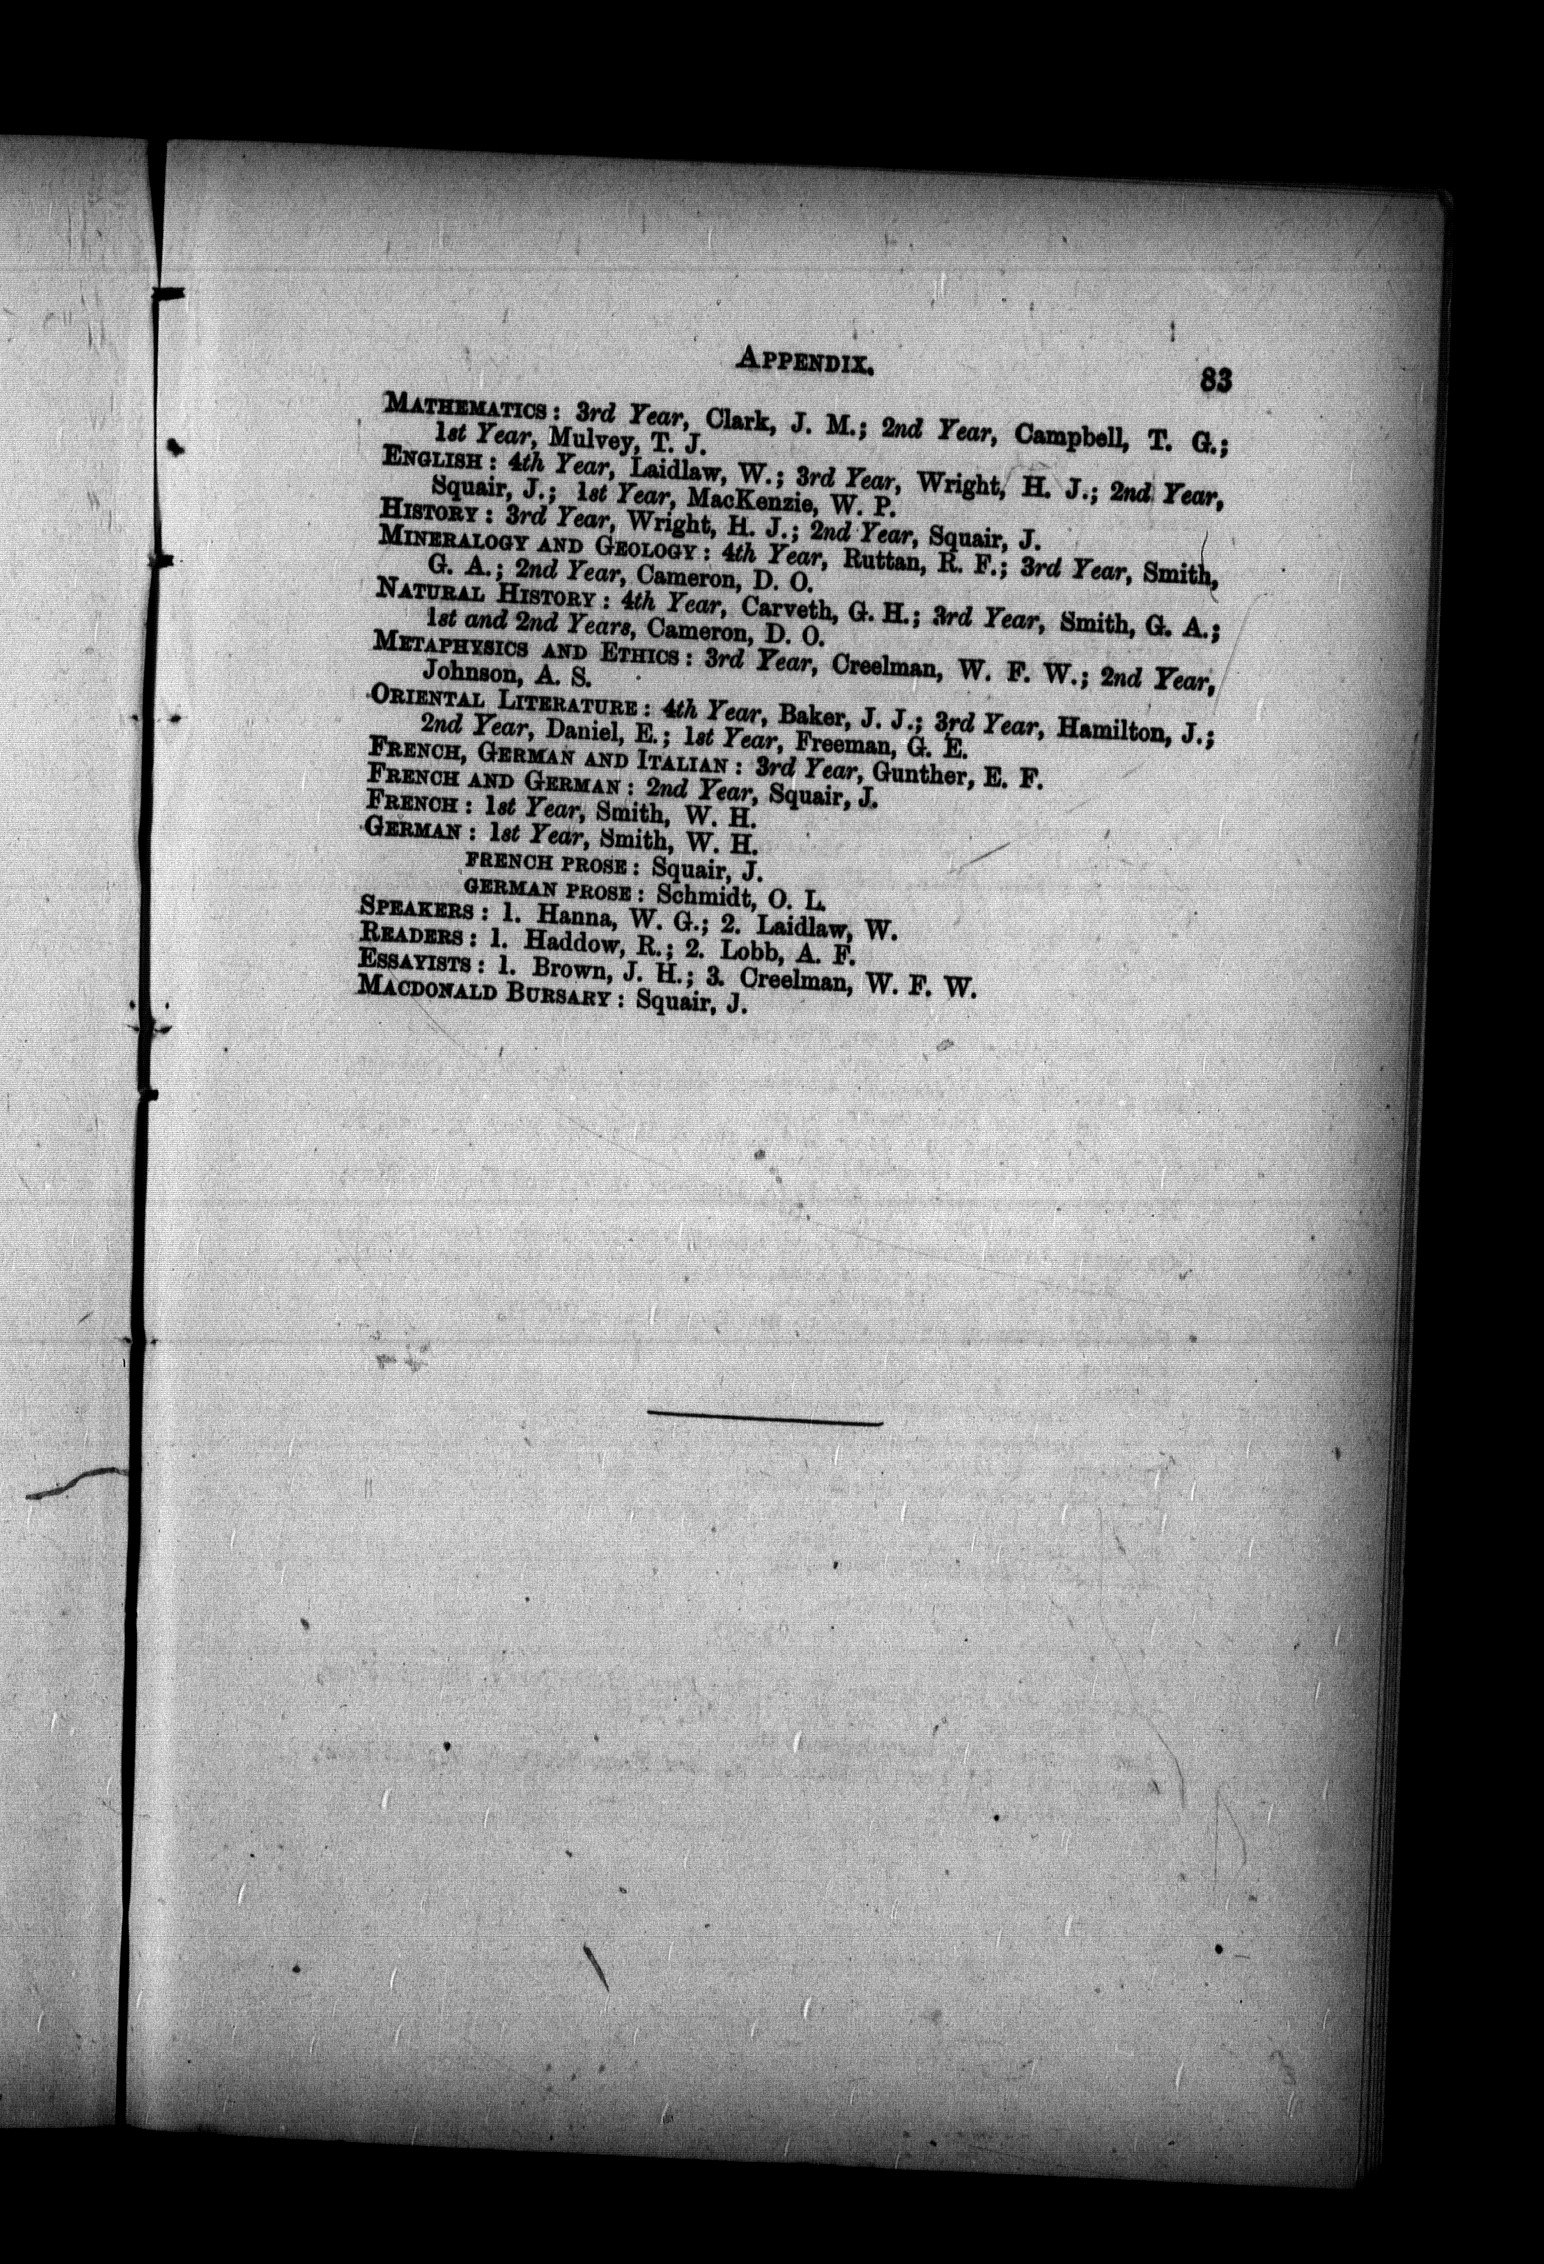 APPENDIX.
83
MATHEMATICS: 3rd Year, Clark, J. M.; 2nd Year, Campbell, T. G.;
1st Year, Mulvey, T. J.
ENGLISH: 4th Year, Laidlaw, W.; 3rd Year, Wright, H. J.; 2nd Year,
Squair, J.; 1st Year, MacKenzie, W. P.
HISTORY: 3rd Year, Wright, H. J.; 2nd Year, Squair, J.
MINERALOGY AND GEOLOGY: 4th Year, Ruttan, R. F.; 3rd Year, Smith,
G. A.; 2nd Year, Cameron, D. O.
NATURAL HISTORY: 4th Year, Carveth, G. H.; 3rd Year, Smith, G. A.;
1st and 2nd Years, Cameron, D. O.
METAPHYSICS AND ETHICS: 3rd Year, Creelman, W. F. W.; 2nd Year,
Johnson, A. S.
ORIENTAL LITERATURE: 4th Year, Baker, J. J.; 3rd Year, Hamilton, J.;
2nd Year, Daniel, E.; 1st Year, Freeman, G. E.
FRENCH, GERMAN AND ITALIAN: 3rd Year, Gunther, E. F.
FRENCH AND GERMAN: 2nd Year, Squair, J.
FRENCH: 1st Year, Smith, W. H.
GERMAN: 1st Year, Smith, W. H.
FRENCH PROSE: Squair, J.
GERMAN PROSE: Schmidt, O. L.
SPEAKERS: 1. Hanna, W. G.; 2. Laidlaw, W.
READERS: 1. Haddow, R.; 2. Lobb, A. F.
ESSAYISTS: 1. Brown, J. H.; 3. Creelman, W. F. W.
MACDONALD BURSARY: Squair, J.